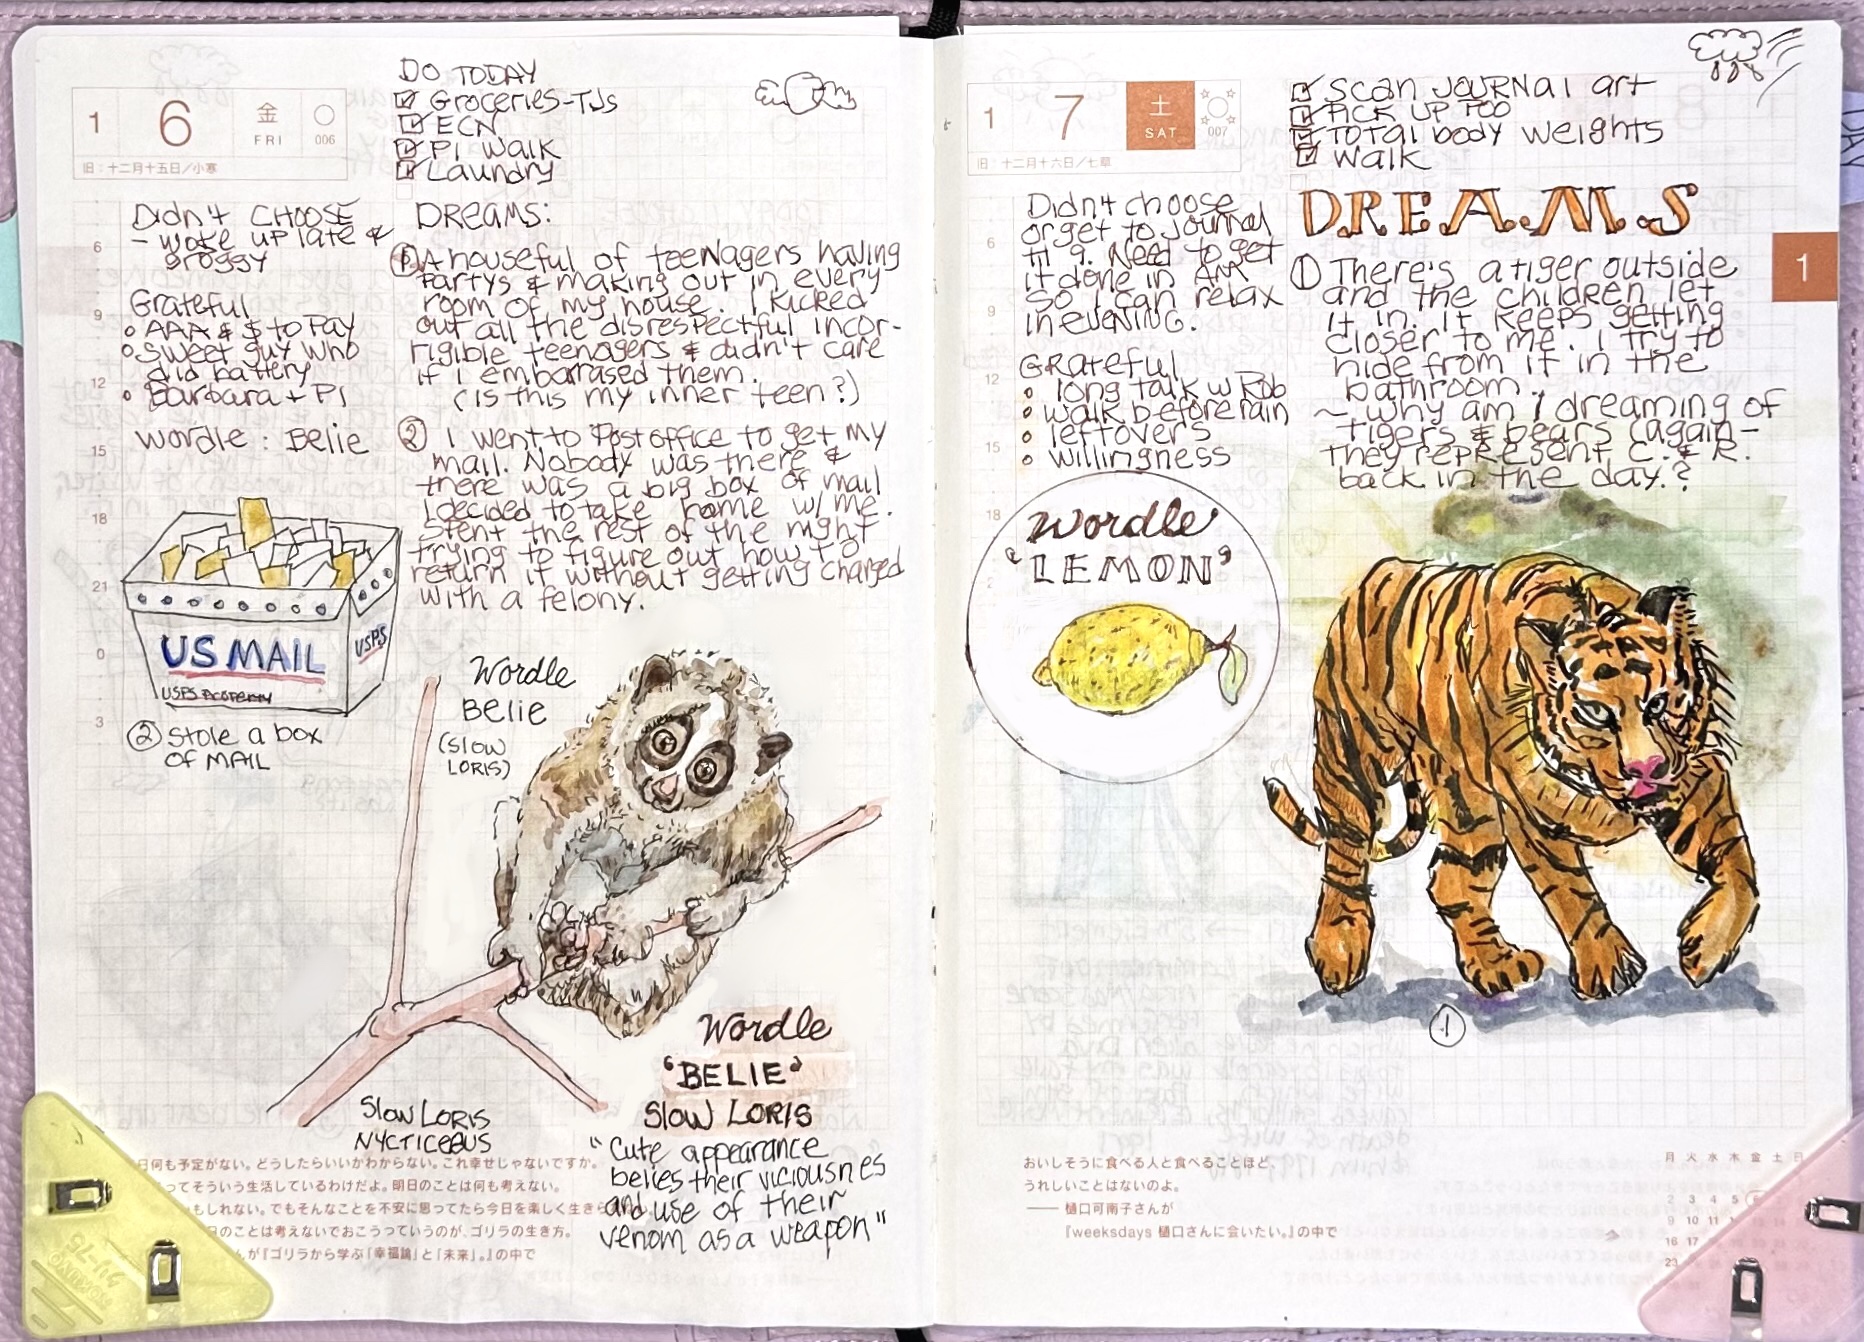 1 6 金 FRI 006
旧：十二月十五日／小寒
DO TODAY
Groceries-TJs
ECN
PI WALK
Laundry
Didn't CHOOSE
- woke up late &
groggy
Grateful
AAA & $ to Pay
Sweet guy who
did battery
Barbara + PI
wordle : Belie
6
9
12
15
18
21
0
3
DREAMS:
① A houseful of teenagers having
partys & making out in every
room of my house. I kicked
out all the disrespectful incor-
rigible teenagers & didn't care
if I embarrased them.
(is this my inner teen?)
② I went to Post office to get my
mail. Nobody was there &
there was a big box of mail
I decided to take home w/ me.
Spent the rest of the night
trying to figure out how to
return it without getting charged
with a felony.
US MAIL
USPS
USPS Property
② Stole a box
OF MAIL
Wordle
Belie
(Slow
LORIS)
Wordle
"BELIE"
SLOW LORIS
"Cute appearance
belies their viciousnes
and use of their
venom as a weapon"
Slow LORIS
NYCTICEBUS
日何も予定がない。どうしたらいいかわからない。これ幸せじゃないですか。
ってそういう生活しているわけだよ。明日のことは何も考えない。
もしれない。でもそんなことを不安に思ってたら今日を楽しく生き
日のことは考えないでおこうっていうのが、ゴリラの生き方。
んが『ゴリラから学ぶ「幸福論」と「未来」。』の中で
1 7 土 SAT 007
旧：十二月十六日／七草
SCAN JOURNAl art
PICK UP TOO
Total body weights
walk
Didn't choose
or get to journal
til 9. Need to get
it done in AM
so I can relax
in evening.
GRateful
long talk w Rob
walk before rain
leftovers
willingness
6
9
12
15
18
Wordle
"LEMON"
DREAMS
① There's a tiger outside
and the children let
it in. It keeps getting
closer to me. I try to
hide from it in the
bathroom.
~ why am I dreaming of
tigers & bears (again -
they represent C. & R.
back in the day.?
1
①
おいしそうに食べる人と食べることほど、
うれしいことはないのよ。
―― 樋口可南子さんが
『weeksdays 樋口さんに会いたい。』の中で
月 火 水 木 金 土 日
2 3 4 5
9 10 11
16 17
23